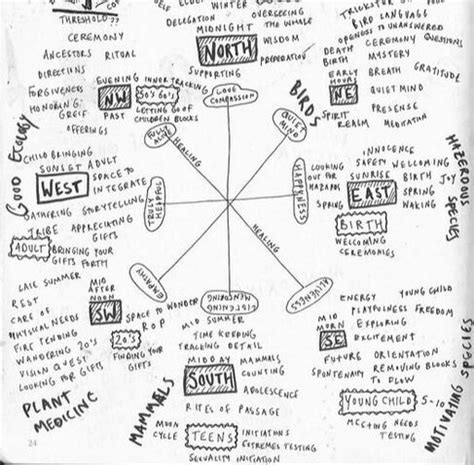 ELDER
WINTER
OVERSEEING
DELEGATION
THE WHOLE
MIDNIGHT
NORTH
WISDOM
PREPARATION
SUPPORTING
THRESHOLD??
CEREMONY
ANCESTORS RITUAL
DIRECTIONS
EVENING INNER TRACKING
FORGIVENESS
NW
50'S 60'S
HONORING
GRIEF
PAST
LETTING GO OF
CHILDREN BLOCKS
OFFERINGS
LOVE
COMPASSION
BIRDS
BIRD LANGUAGE
OPENNESS TO UNANSWERED
QUESTIONS
DEATH
CEREMONY
BIRTH
MYSTERY
EARLY
HOURS
BREATH
GRATITUDE
NE
QUIET MIND
SPIRIT
PRESENSE
REALM
MEDITATION
QUIET
MIND
FULLY
ALIVE
HEALING
GOOD ECOLOGY
CHILD BRINGING
SUNSET ADULT
WEST
SPACE TO
INTEGRATE
GATHERING STORYTELLING
TRIBE
APPRECIATING
GIFTS
ADULT
BRINGING YOUR
GIFTS FORTH
TRULY
HELPFUL
HAPPINESS
HAZARDOUS SPECIES
INNOCENCE
LOOKING
OUT FOR
HAZARDS
SAFETY WELCOMING
SUNRISE
BIRTH JOY
EAST
SPRING
SPRING
WAKING
BIRTH
WELCOMING
CEREMONIES
EMPATHY
HEALING
LISTENING
MENTORING
ALIVENESS
LATE SUMMER
REST
MID
AFTER
NOON
CARE OF
PHYSICAL NEEDS
SW
SPACE TO WONDER
FIRE TENDING
R O P
WANDERING 20'S
20'S
VISION QUEST
FINDING YOUR
GIFTS
LOOKING FOR GIFTS
PLANT
MEDICINE
MID SUMMER
TIME KEEPING
TRACKING DETAIL
MIDDAY
MAMMALS
SOUTH
COUNTING
ADOLESCENCE
RITES OF PASSAGE
MAMMALS
MOON
CYCLE
TEENS
INITIATIONS
EXTREMES TESTING
SEXUALITY INITIATION
ENERGY
YOUNG CHILD
PLAYFULNESS FREEDOM
MID
MORN
EXPLORING
SE
EXCITEMENT
FUTURE ORIENTATION
SPONTENARY
REMOVING BLOCKS
TO FLOW
YOUNG CHILD 5-10
MEETING NEEDS
TESTING
MOTIVATING SPECIES
24